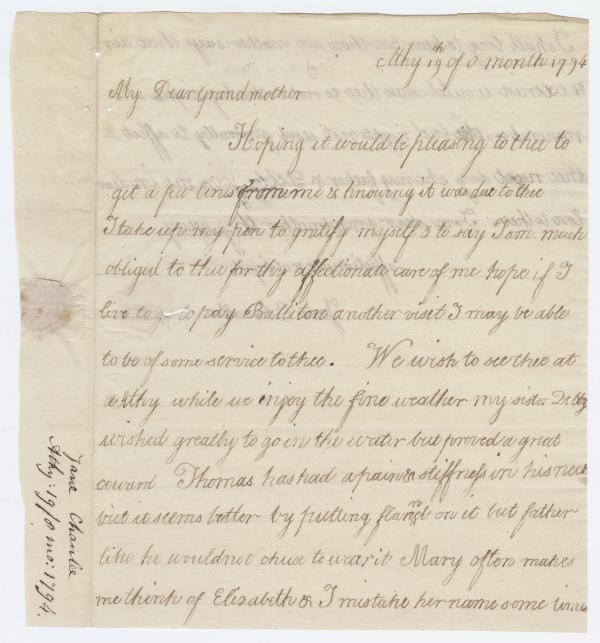 Athy 19th of 8 month 1794
My Dear Grandmother
Hoping it would be pleasing to thee to
get a few lines from me & knowing it was due to thee
I take up my pen to gratify myself & to say I am much
obliged to thee for thy affectionate care of me hope if I
live to go to pay Balliton another visit I may be able
to be of some service to thee. We wish to see thee at
athy while we enjoy the fine weather my sister Debby
wished greatly to go in the water but proved a great
coward Thomas has had a pain & stiffness in his neck
but it seems better by putting flannel on it but father
like he would not chuse to wear it Mary often makes
me think of Elizabeth & I mistake her name some time
Jane Chanlee
Athy: 19/8 mo: 1794.